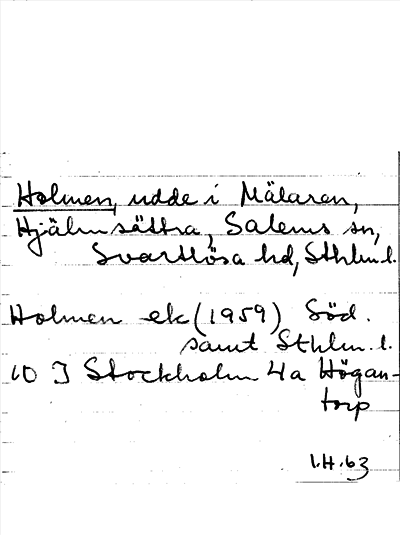 Holmen, udde i Mälaren,
Hjälmsättra, Salems sn,
Svartlösa hd, Sthlm l.
Holmen ek (1959) Söd.
samt Sthlm. l.
10 I Stockholm 4a Högan-
torp
1.H.63